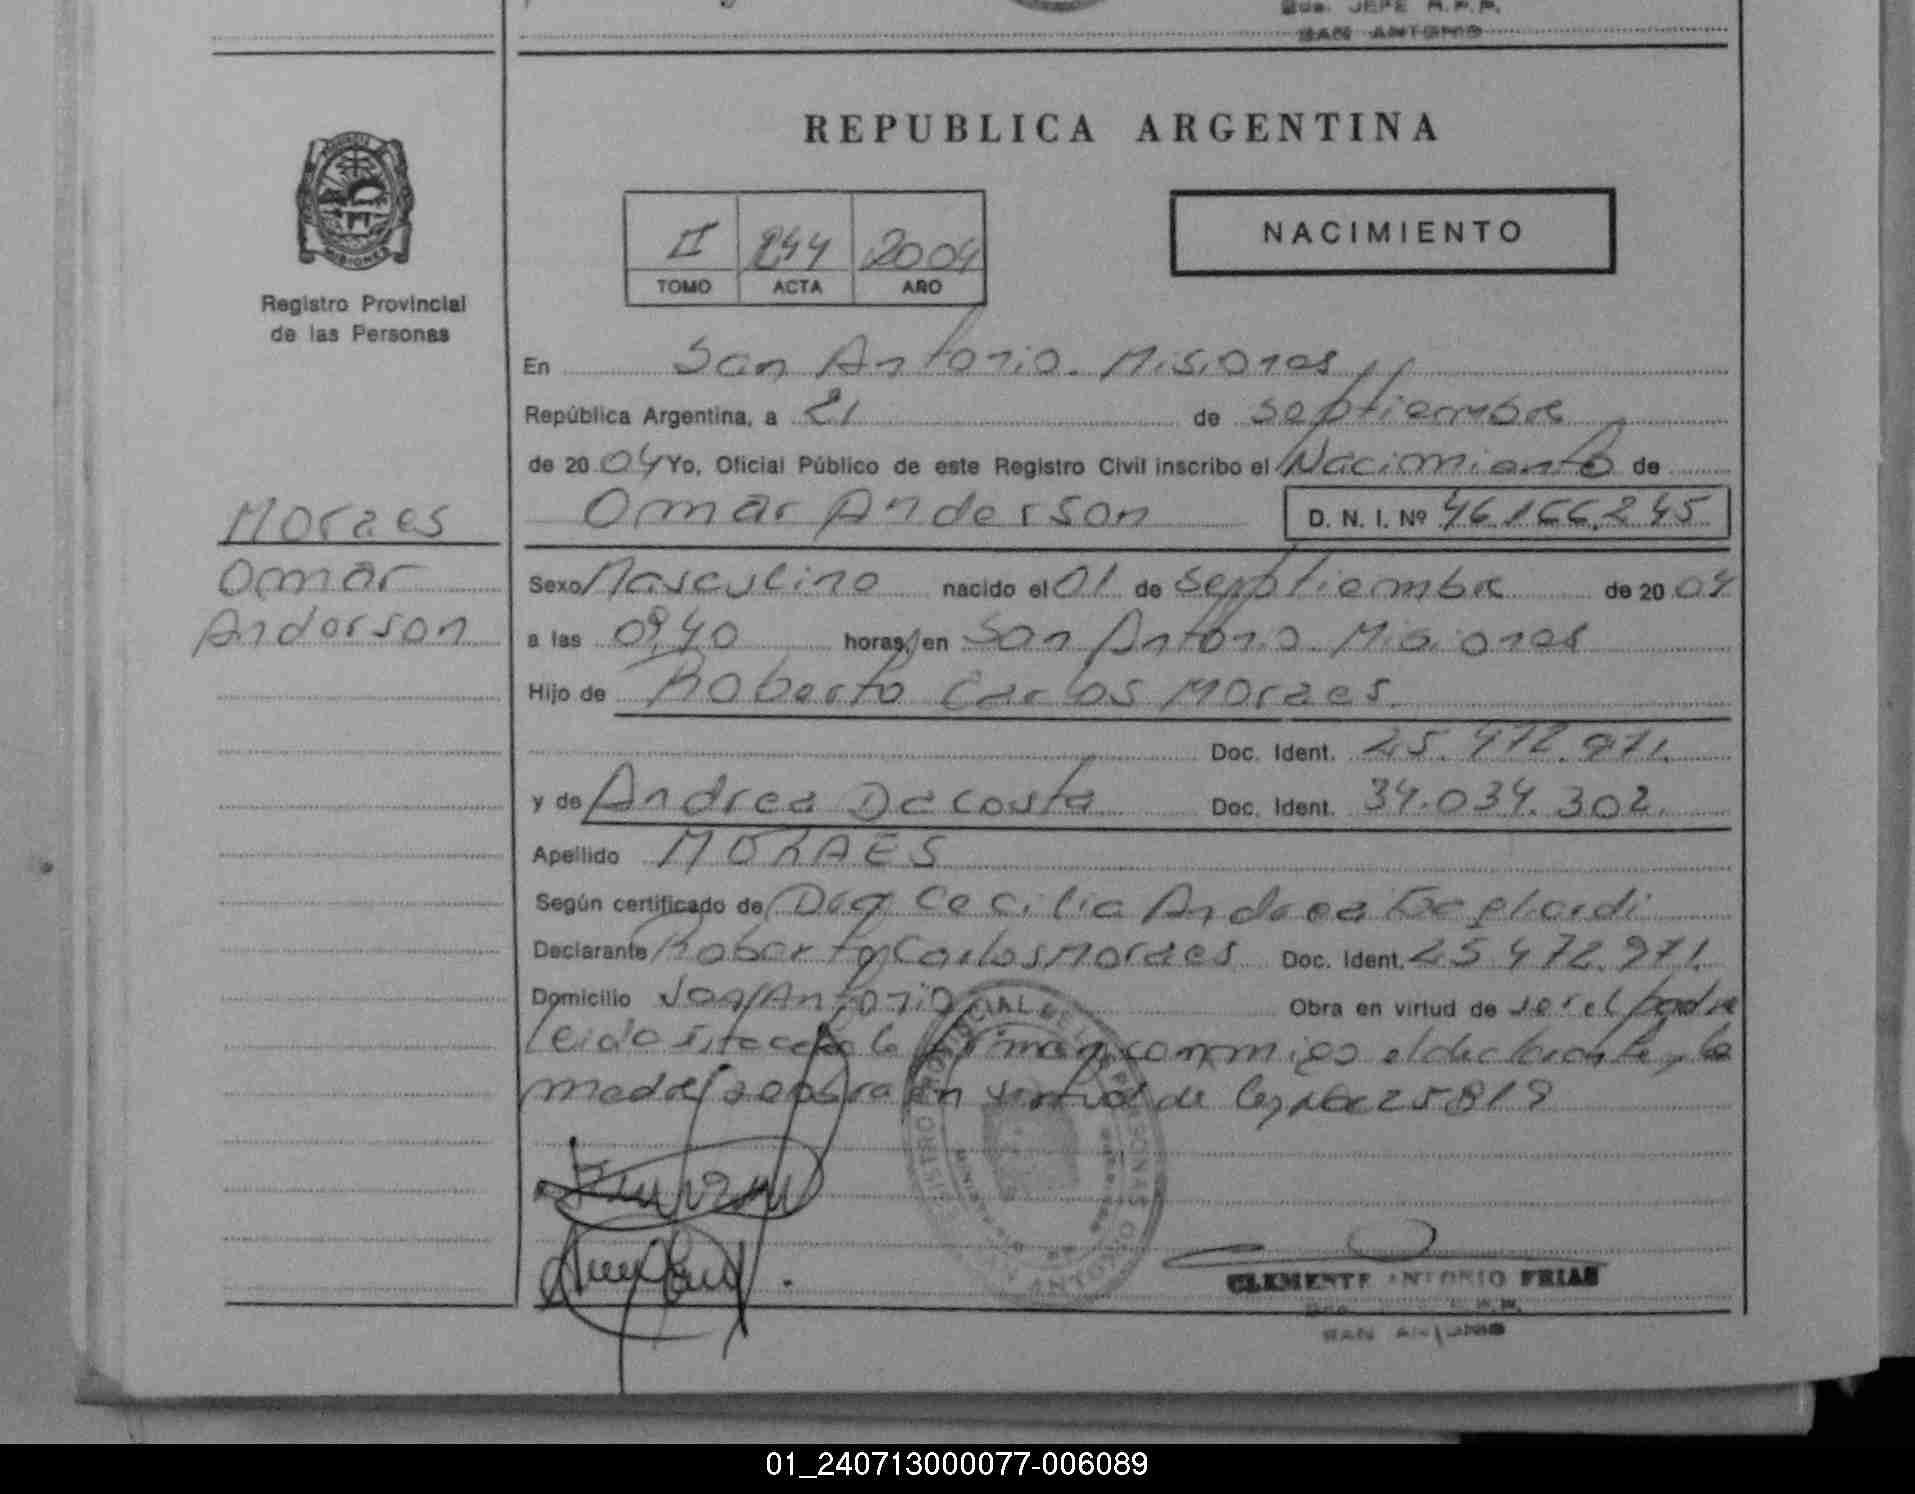 Bdo. JEFE R.P.P.
SAN ANTONIO
REPUBLICA ARGENTINA
NACIMIENTO
II 244 2004
TOMO ACTA AÑO
MISIONES
Registro Provincial
de las Personas
En San Antonio. Misiones
República Argentina, a 21 de septiembre
de 2004 Yo, Oficial Público de este Registro Civil inscribo el Nacimiento de
Omar Anderson D. N. I. Nº 46.166.245
Moraes
Omar
Anderson
Sexo Masculino nacido el 01 de septiembre de 2004
a las 09,40 horas, en San Antonio. Misiones
Hijo de Roberto Carlos Moraes.
Doc. Ident. 25.472.971.
y de Andrea Dacosta Doc. Ident. 34.034.302.
Apellido MORAES
Según certificado de Dra Cecilia Andrea
Declarante Roberto Carlos Moraes Doc. Ident. 25.472.971.
Domicilio San Antonio Obra en virtud de ser el padre
Leido firman conmigo el declarante y la
madre obra en virtud de ley 25.819
CLEMENTE ANTONIO FRIAS
SAN ANTONIO
01_240713000077-006089